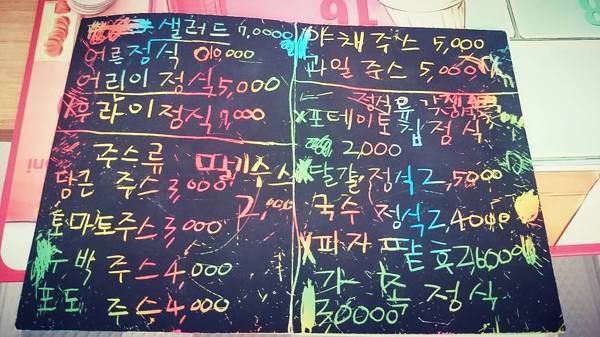 샐러드 7,0000
어른정식 010,000
어린이 정식 5,000
후라이정식 7,000
주스류
딸기주스
2,000
당근 주스 3,000
토마토주스 3,000
수박 주스 4,000
포도 주스 4,000
야채주스 5,000
과일 주스 5,000
정식류
포테이토칩 정식
2,000
달걀 정식 2,5000
국수 정식 2,4000
피자
가족 정식
30000